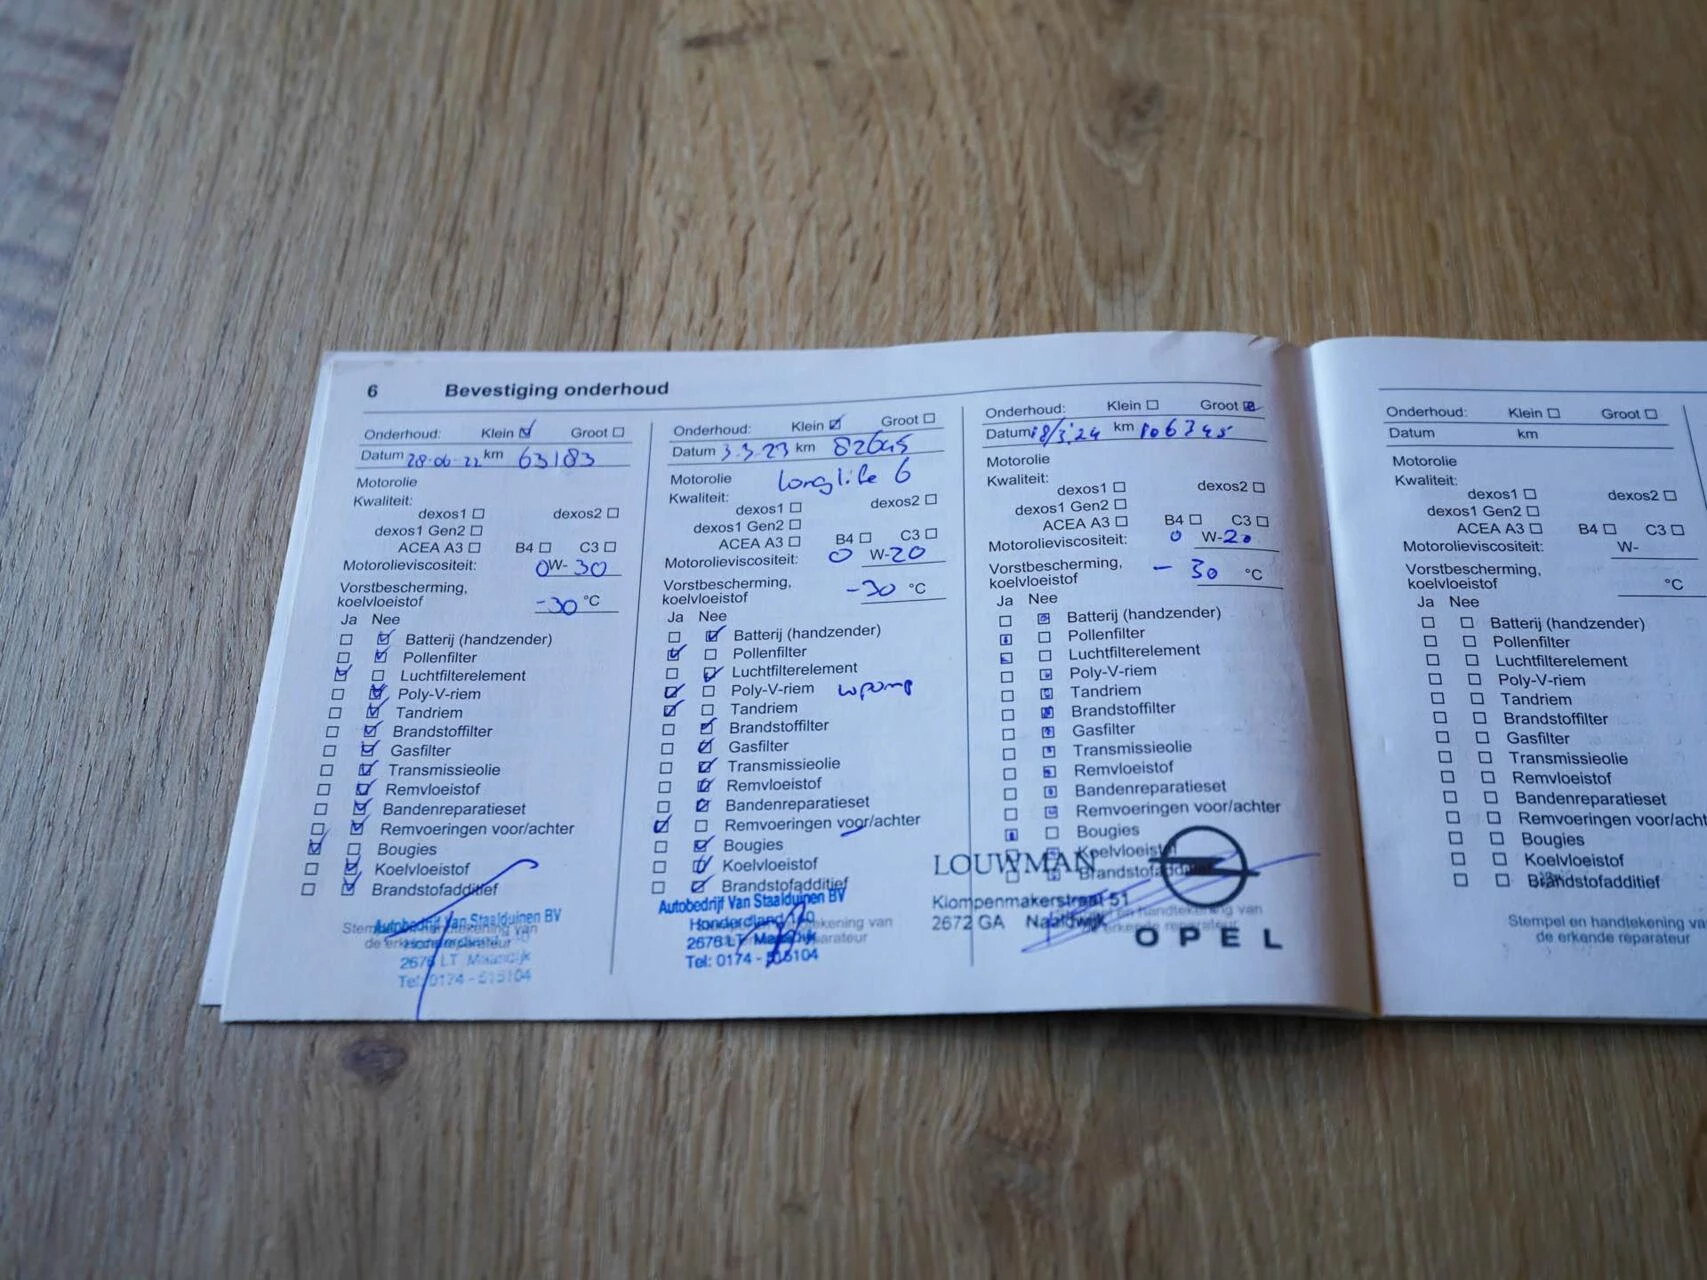 6 Bevestiging onderhoud
Onderhoud: Klein Groot
Datum 28-06-22 km 63183
Motorolie
Kwaliteit:
dexos1 dexos2
dexos1 Gen2
ACEA A3 B4 C3
Motorolieviscositeit: 0W-30
Vorstbescherming,
koelvloeistof -30 °C
Ja Nee
Batterij (handzender)
Pollenfilter
Luchtfilterelement
Poly-V-riem
Tandriem
Brandstoffilter
Gasfilter
Transmissieolie
Remvloeistof
Bandenreparatieset
Remvoeringen voor/achter
Bougies
Koelvloeistof
Brandstofadditief
Autobedrijf Van Staalduinen BV
Tel: 0174 - 515104
Onderhoud: Klein Groot
Datum 3.3.23 km 82645
Motorolie longlife 6
Kwaliteit:
dexos1 dexos2
dexos1 Gen2
ACEA A3 B4 C3
Motorolieviscositeit: 0 W-20
Vorstbescherming,
koelvloeistof -30 °C
Ja Nee
Batterij (handzender)
Pollenfilter
Luchtfilterelement
Poly-V-riem wpomp
Tandriem
Brandstoffilter
Gasfilter
Transmissieolie
Remvloeistof
Bandenreparatieset
Remvoeringen voor/achter
Bougies
Koelvloeistof
Brandstofadditief
Autobedrijf Van Staalduinen BV
Honderdland 140
2676 LT Maasdijk
Tel: 0174 - 515104
Onderhoud: Klein Groot
Datum 18/3'24 km 106745
Motorolie
Kwaliteit:
dexos1 dexos2
dexos1 Gen2
ACEA A3 B4 C3
Motorolieviscositeit: 0 W-20
Vorstbescherming,
koelvloeistof - 30 °C
Ja Nee
Batterij (handzender)
Pollenfilter
Luchtfilterelement
Poly-V-riem
Tandriem
Brandstoffilter
Gasfilter
Transmissieolie
Remvloeistof
Bandenreparatieset
Remvoeringen voor/achter
Bougies
Koelvloeistof
Brandstofadditief
LOUWMAN
Klompenmakerstraat 51
2672 GA Naaldwijk
OPEL
Onderhoud: Klein Groot
Datum km
Motorolie
Kwaliteit:
dexos1 dexos2
dexos1 Gen2
ACEA A3 B4 C3
Motorolieviscositeit: W-
Vorstbescherming,
koelvloeistof °C
Ja Nee
Batterij (handzender)
Pollenfilter
Luchtfilterelement
Poly-V-riem
Tandriem
Brandstoffilter
Gasfilter
Transmissieolie
Remvloeistof
Bandenreparatieset
Remvoeringen voor/acht
Bougies
Koelvloeistof
Brandstofadditief
Stempel en handtekening va
de erkende reparateur